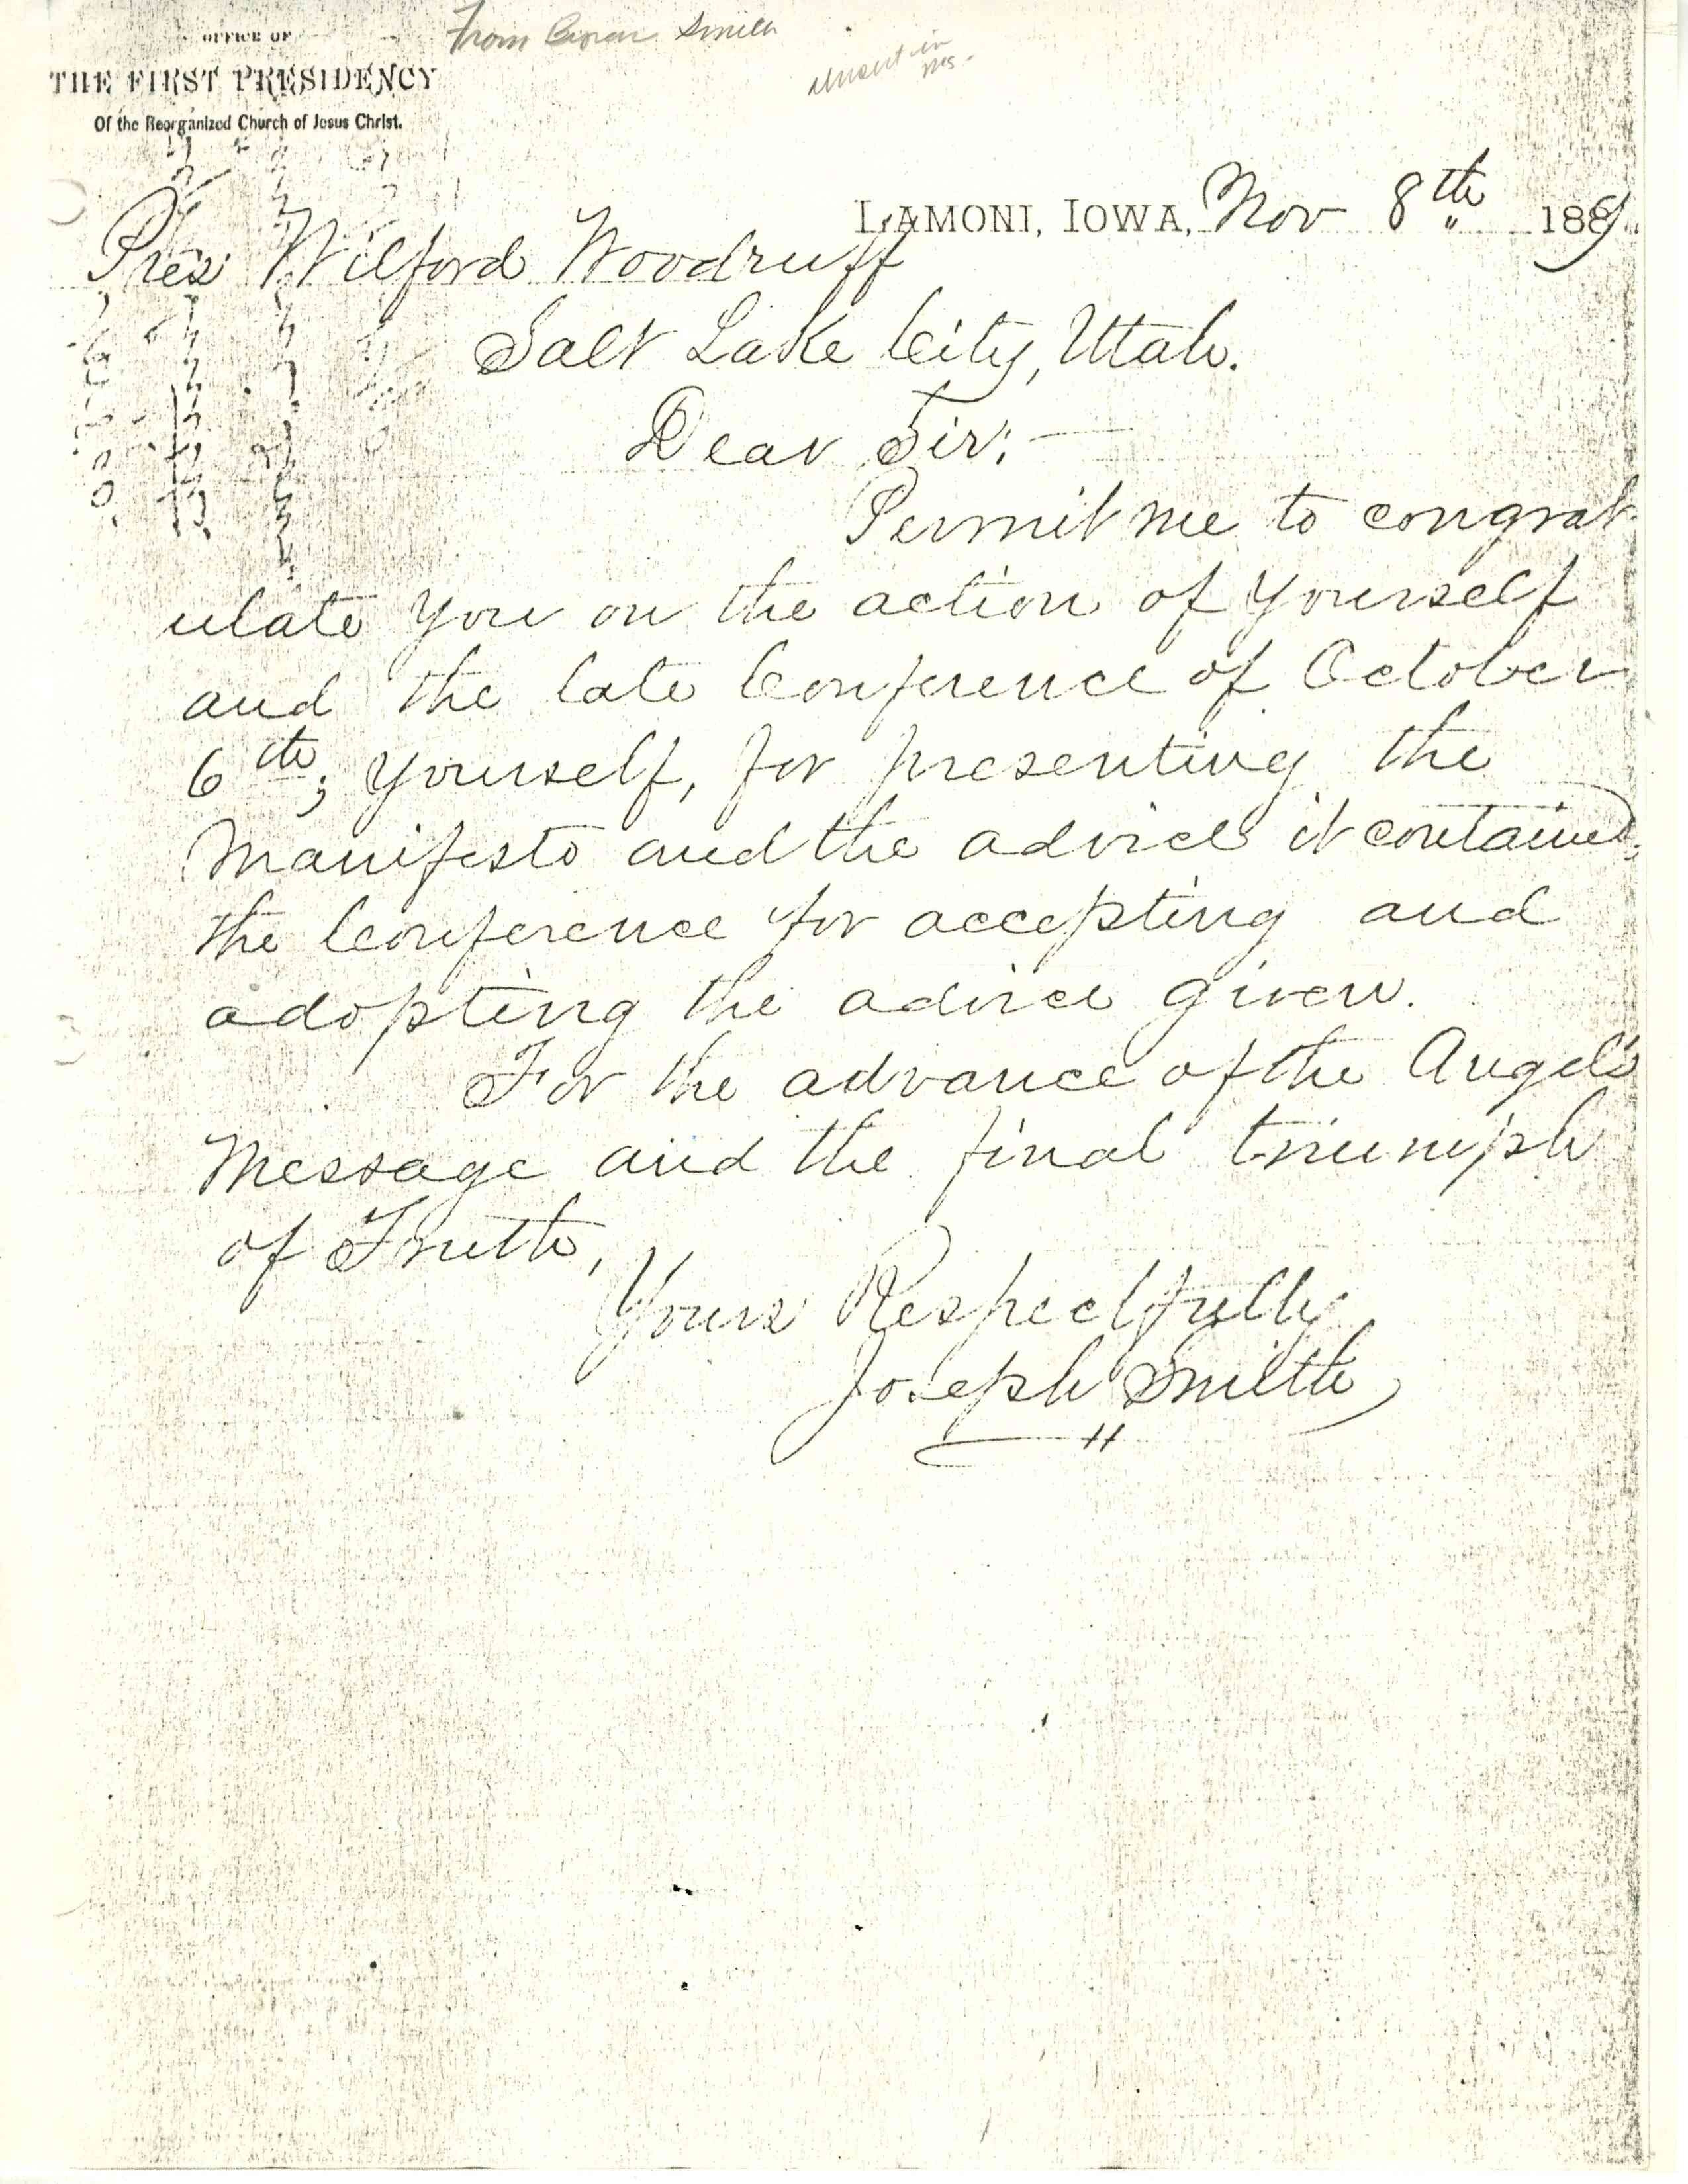 From Smith
insert in
ms.
OFFICE OF
THE FIRST PRESIDENCY
Of the Reorganized Church of Jesus Christ.
LAMONI, IOWA, Nov 8th 1889
Pres Wilford Woodruff
Salt Lake City, Utah.
Dear Sir;—
Permit me to congrat
ulate you on the action of yourself
and the late Conference of October
6th; yourself, for presenting the
Manifesto and the advice it contained,
the Conference for accepting and
adopting the advice given.
For the advance of the Angel's
Message and the final triumph
of Truth,
Yours Respectfully
Joseph Smith